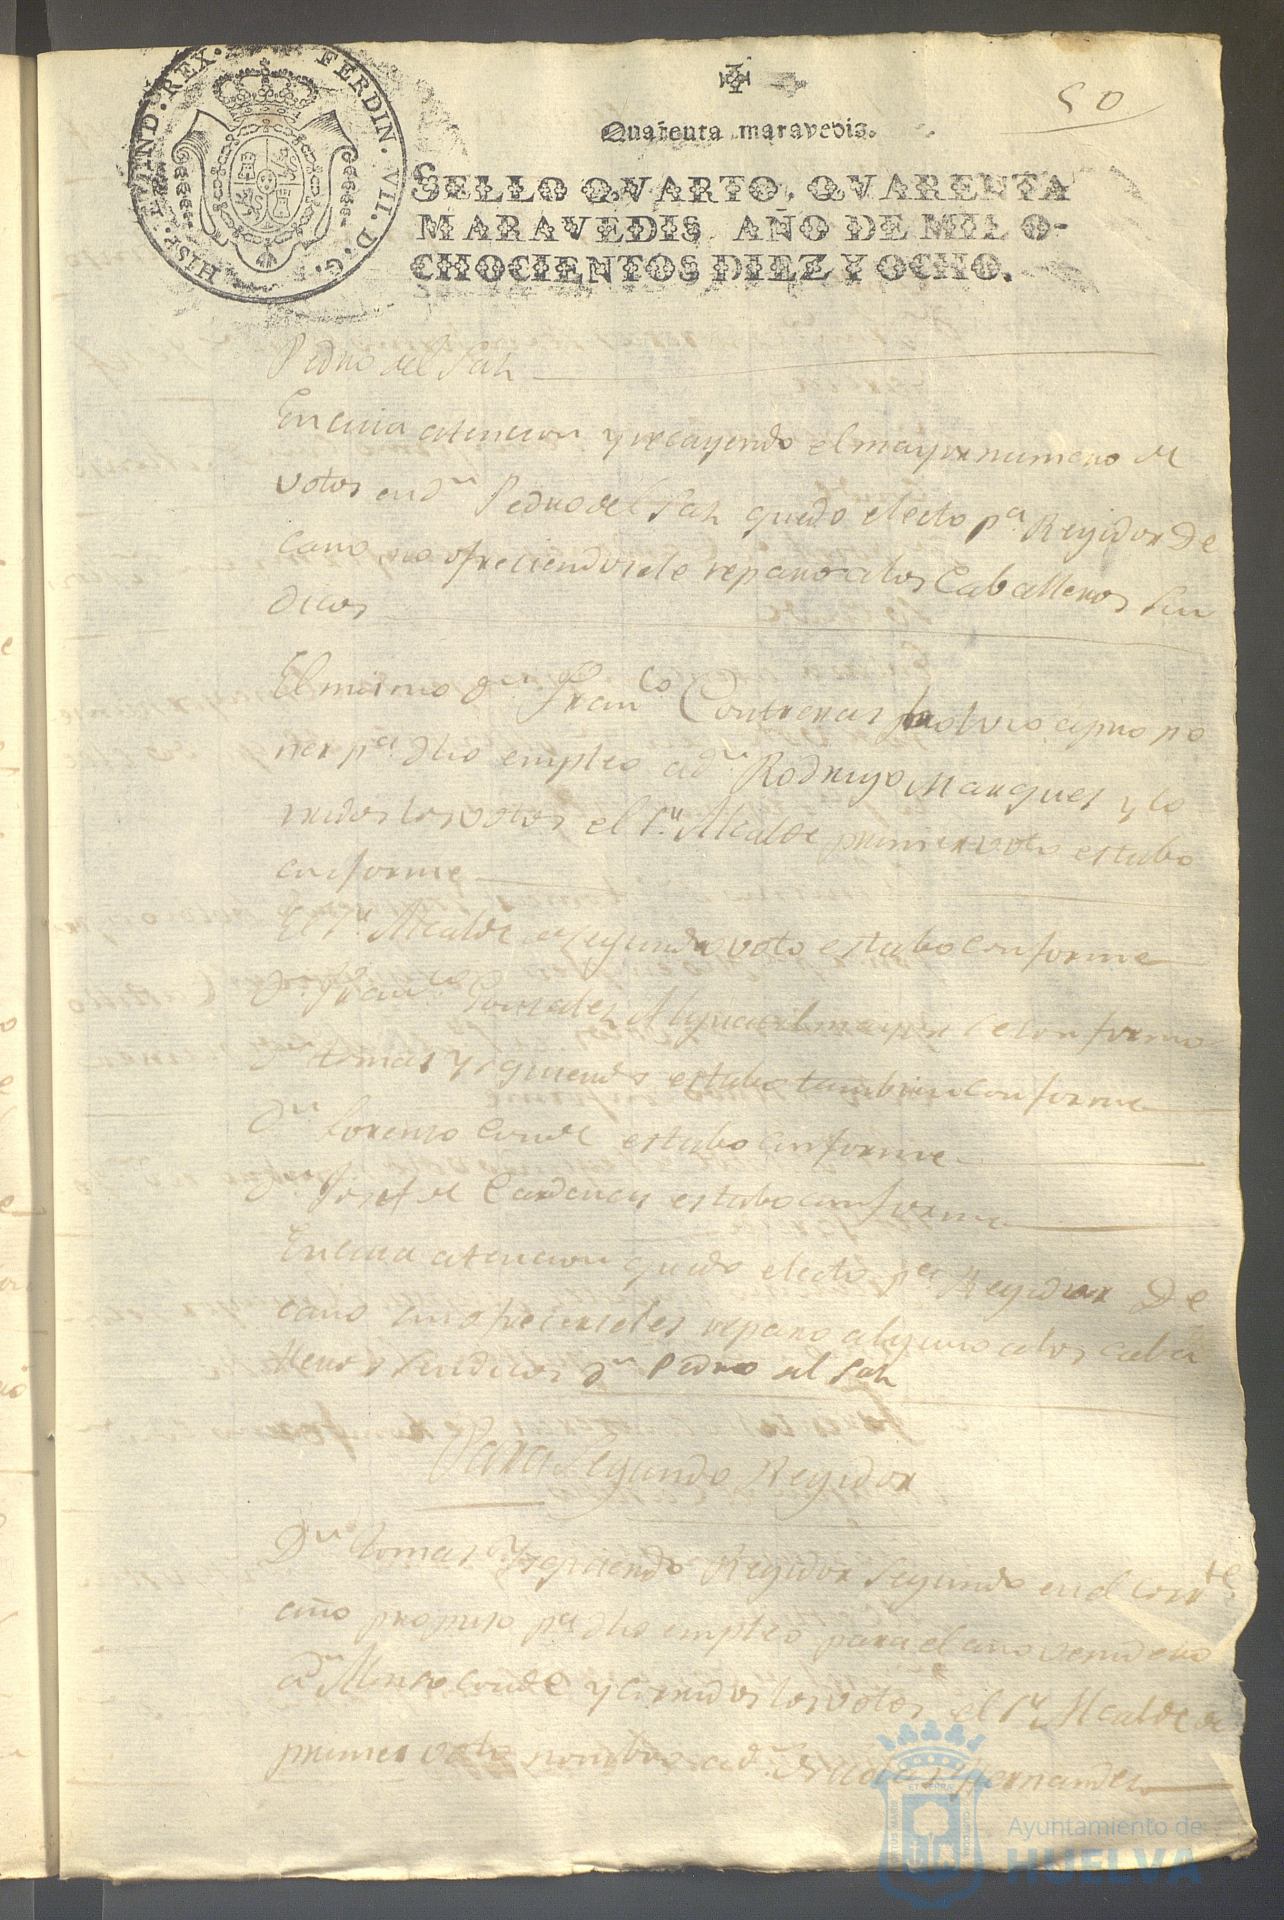 HISP. ET IND. REX. FERDIN. VII. D. G.
50
Quarenta maravedis.
SELLO QVARTO, QVARENTA
MARAVEDIS, AÑO DE MIL O-
CHOCIENTOS DIEZ Y OCHO.
Pedro del Paz
En cuia atencion y recayendo el mayor numero de
votos en dn Pedro del Paz quedo electo pa Regidor De
cano no ofreciendosele reparo a los Caballeros Sin
dicos
El mismo dn Franco Contreras volvio a propo
ner pa dho empleo a dn Rodrigo Marques y co
rridos los votos el Sr Alcalde primer voto estubo
conforme
El Sr Alcalde de segundo voto estubo conforme
Dn Franco Gonzalez Alguacil mayor se conformo
Dn tomas Yzquierdo estubo tambien conforme
Dn Lorenzo Conde estubo conforme
Dn Josef de Cardenas estubo conforme
En cuia atencion quedo electo pa Regidor De
cano sin ofrecerseles reparo alguno a los caba
lleros sindicos dn Pedro del Paz
Para Segundo Regidor
Dn tomas Yzquierdo Regidor Segundo en el corrte
año propuso pa dho empleo para el año venidero
a dn Alonso conde y corridos los votos el Sr Alcalde de
primer voto nombro a dn Hernandez
Ayuntamiento de
HUELVA